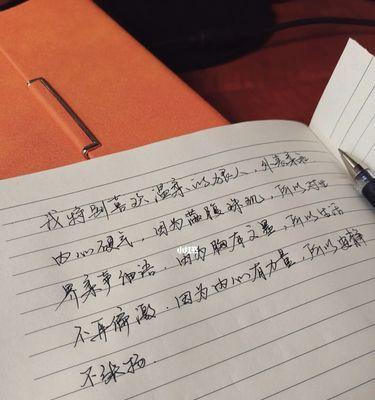 我特别喜欢温柔的人，外表柔和
内心硬气，因为满腹珠玑，所以对世
界柔声细语，因为胸文墨，所以生活
小红书
不再偏激．因为内心有力量，所以安静
不张扬．